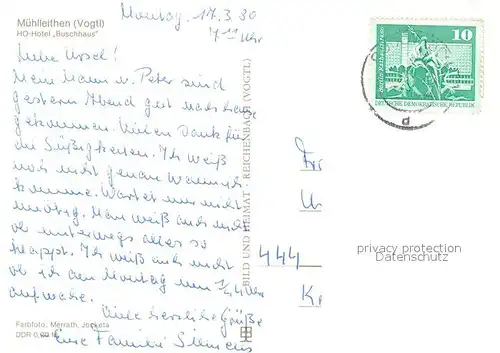 Mühlleithen (Vogtl)
HO-Hotel „Buschhaus"
Montag, 17.3.80
7 11 Uhr
Liebe Ursel!
Mein Mann u. Peter sind
gestern Abend gut nach Hause
gekommen. Vielen Dank für
die Süßigkeiten. Ich weiß
noch nicht genau wann ich
komme. Wartet nur nicht
unnötig. Man weiß auch nicht
ob unterwegs alles so
klappt. Ich weiß auch nicht
ob ich den Montag um 1/4 Uhr
aufwache.
Viele herzliche Grüße
Eure Familie
Farbfoto: Merrath, Jocketa
DDR 0,20 M
BILD UND HEIMAT · REICHENBACH (VOGTL)
10
DEUTSCHE DEMOKRATISCHE REPUBLIK
d
Fr
U
444
K
privacy protection
Datenschutz